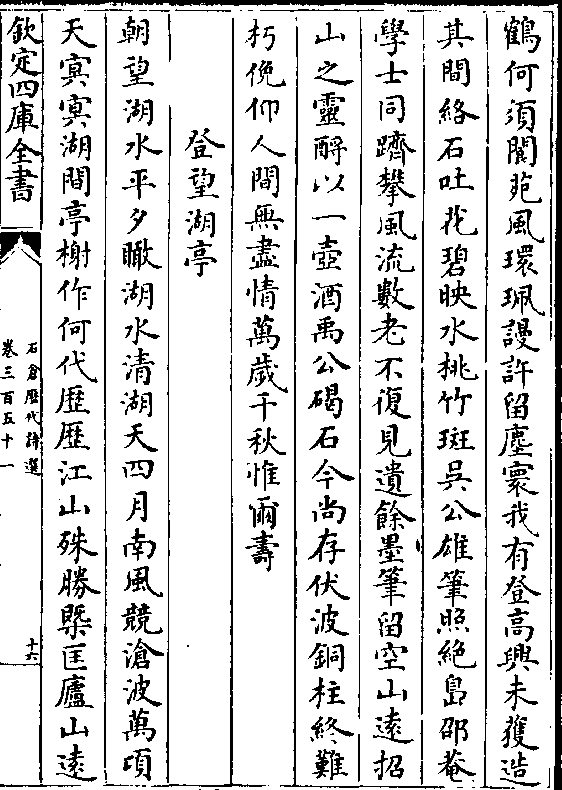 鶴何須閬苑風環珮謾許留塵寰我有登高興未獲造
其間絡石吐花碧映水桃竹斑吳公雄筆照絶島邵菴
學士同躋攀風流數老不復見遺餘墨筆留空山遠招
山之靈酹以一壺酒禹公碣石今尚存伏波銅柱終難
朽俛仰人間無盡情萬歲千秋惟爾壽
登望湖亭
朝望湖水平夕瞰湖水清湖天四月南風競滄波萬頃
天㝠㝠湖間亭榭作何代歴歴江山殊勝槩匡廬山遠
欽定四庫全書
石倉歴代詩選
卷三百五十一
十六